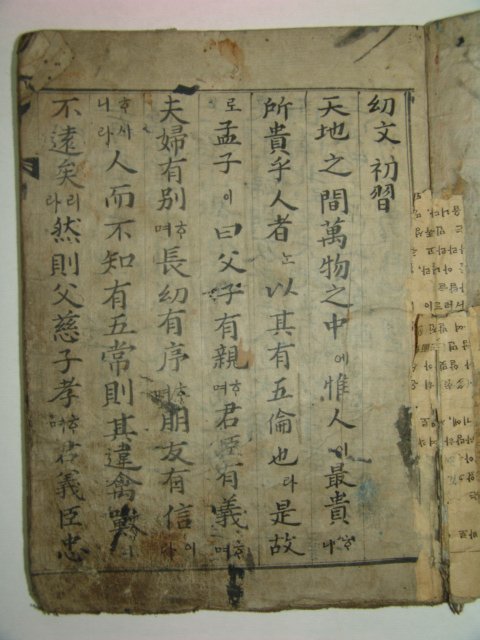 幼文初習
天地之間萬物之中에惟人이最貴ᄒᆞ니
所貴乎人者노以其有五倫也라是故
로孟子이曰父子有親ᄒᆞ며君臣有義ᄒᆞ며
夫婦有別ᄒᆞ며長幼有序ᄒᆞ며朋友有信이라
ᄒᆞ시니라人而不知有五常則其違禽獸
不遠矣리라然則父慈子孝ᄒᆞ며君義臣忠